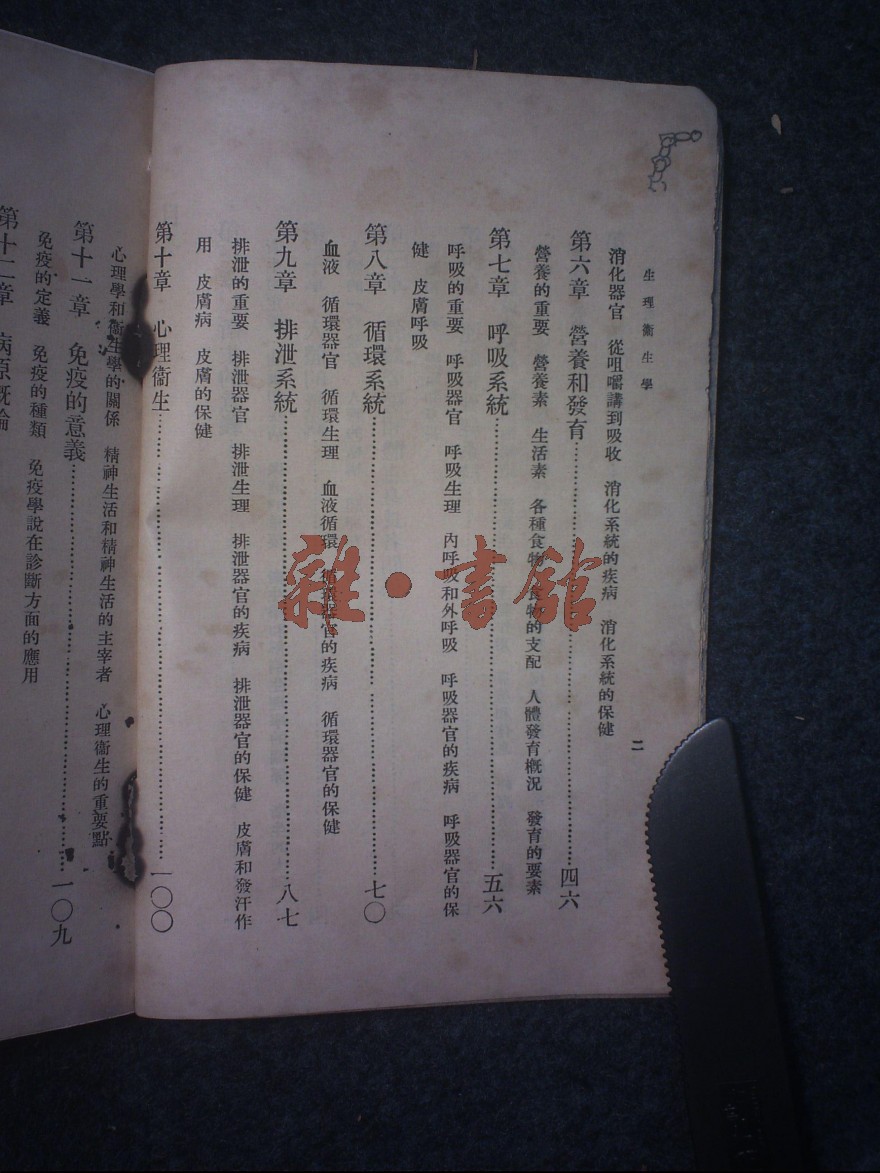 生理衞生學
二
消化器官 從咀嚼講到吸收 消化系統的疾病 消化系統的保健
第六章 營養和發育……四六
營養的重要 營養素 生活素 各種食物 食物的支配 人體發育概況 發育的要素
第七章 呼吸系統……五六
呼吸的重要 呼吸器官 呼吸生理 內呼吸和外呼吸 呼吸器官的疾病 呼吸器官的保
健 皮膚呼吸
第八章 循環系統……七〇
血液 循環器官 循環生理 血液循環 循環器官的疾病 循環器官的保健
第九章 排泄系統……八七
排泄的重要 排泄器官 排泄生理 排泄器官的疾病 排泄器官的保健 皮膚和發汗作
用 皮膚病 皮膚的保健
第十章 心理衞生……一〇〇
心理學和衞生學的關係 精神生活和精神生活的主宰者 心理衞生的重要點
第十一章 免疫的意義……一〇九
免疫的定義 免疫的種類 免疫學說在診斷方面的應用
第十二章 病原概論
雜·書館